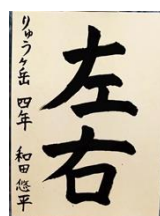 左右
りゅうヶ岳 四年 和田悠平